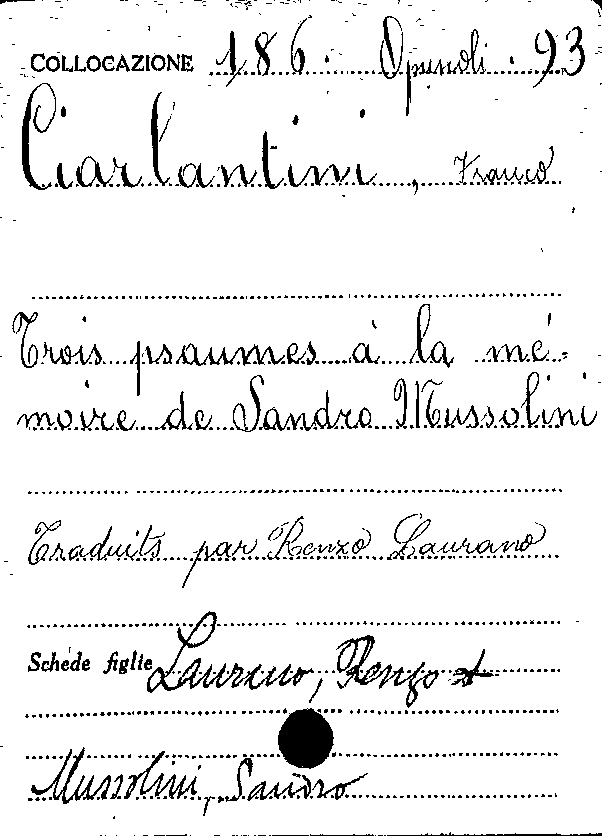 COLLOCAZIONE 186. Opuscoli. 93
Ciarlantini, Franco
Trois psaumes à la mé-
moire de Sandro Mussolini
Traduits par Renzo Laurano
Schede figlie Laurano, Renzo
Mussolini, Sandro